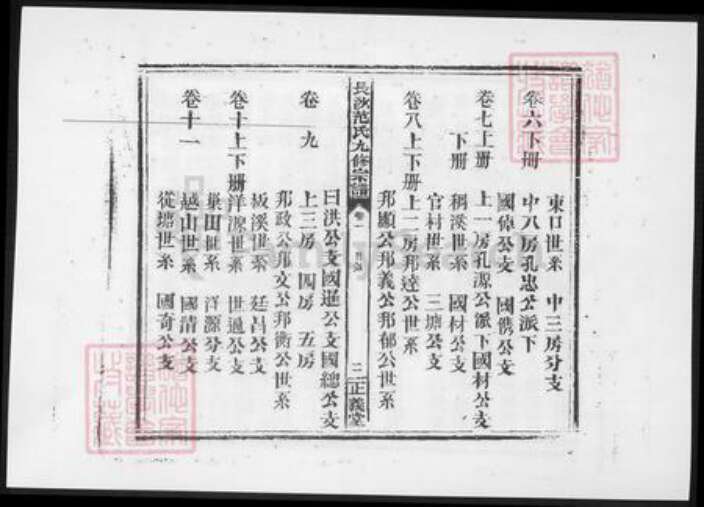 東口世系 中三房分支
卷六下册 中八房孔忠公派下
國偉公支 國儁公支
卷七上册 上一房孔源公派下國材公支
下册 稠溪世系 國材公支
官村世系 三塘公支
卷八上下册 上二房邦達公世系
邦顯公邦義公邦郁公世系
長沙范氏九修宗譜 卷一 目錄 二 正義堂
曰洪公支國暹公支國總公支
卷九 上三房 四房 五房
邦政公邦文公邦衡公世系
板溪世系 廷昌公支
卷十上下册 洋源世系 世遜公支
巢田世系 洋源分支
卷十一 越山世系 國清公支
從塘世系 國奇公支